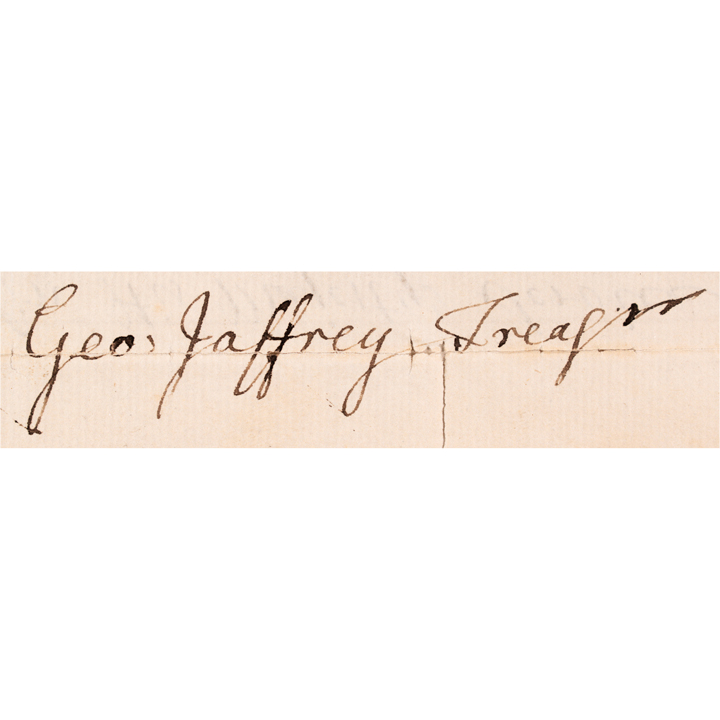 Geo. Jaffrey Treasr